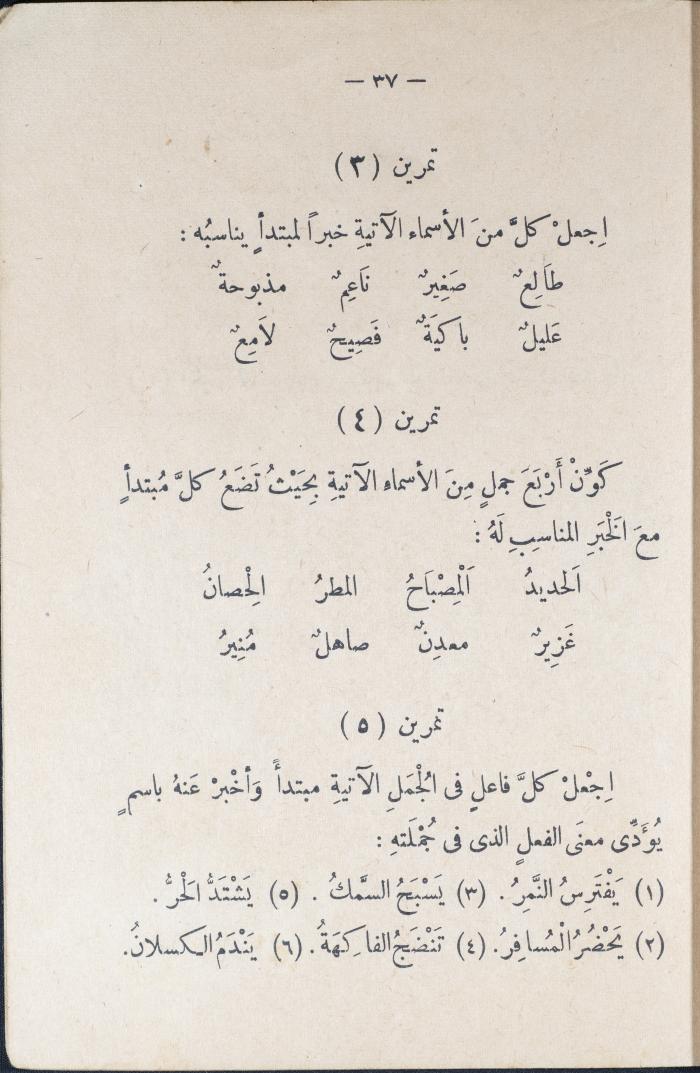 — ٣٧ —
تمرين (٣)
اِجعلْ كلَّ منَ الأسماء الآتيةِ خبراً لمبتدأٍ يناسبُه :
طَالِعٌ صَغِيرٌ نَاعِمٌ مذبوحةٌ
عَليلٌ باكيَةٌ فَصِيحٌ لاَمِعٌ
تمرين (٤)
كَوِّنْ أَرْبَعَ جملٍ مِنَ الأسماءِ الآتيةِ بِحَيْثُ تَضَعُ كلَّ مُبتدأٍ
معَ الَخْبَرِ المناسبِ لَهُ :
اَلحديدُ اَلْمِصْبَاحُ المطرُ الِحْصانُ
غَزِيرٌ معدِنٌ صاهلٌ مُنِيرُ
تمرين (٥)
اِجْعلْ كلَّ فاعلٍ فى الُجْمَلِ الآتيةِ مبتدأً وَأخْبرْ عَنهُ باسمٍ
يُؤَدِّى معنَى الفعلِ الذى فى جُمْلَتهِ :
(١) يَفْتَرِسُ النَّمِرُ . (٣) يَسْبَحُ السَّمكُ . (٥) يَشْتَدُّ الَحْرُّ .
(٢) يَحْضُرُ الْمُسافِرُ . (٤) تَنْضَجُ الفاكِهَةُ . (٦) يَنْدَمُ الكسلانُ .